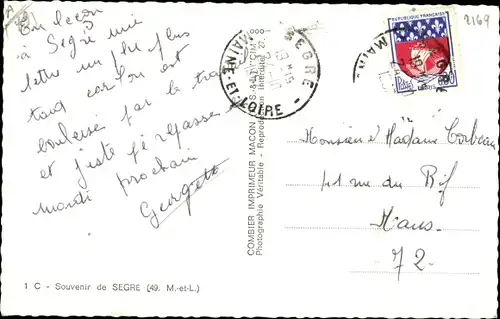 En leçon
à Segré mi
lettre un peu plus
tard car on est
bouleversé par le tra
et juste je repasse
mardi prochain
Georgette
1 C - Souvenir de SEGRE (49. M.-et-L.)
COMBIER IMPRIMEUR MACON
Photographie Véritable - Reproduction Interdite
SEGRE
MAINE-ET-LOIRE
REPUBLIQUE FRANÇAISE
2169
Monsieur Madame Corbeau
41 rue du Rif
Mans
72.